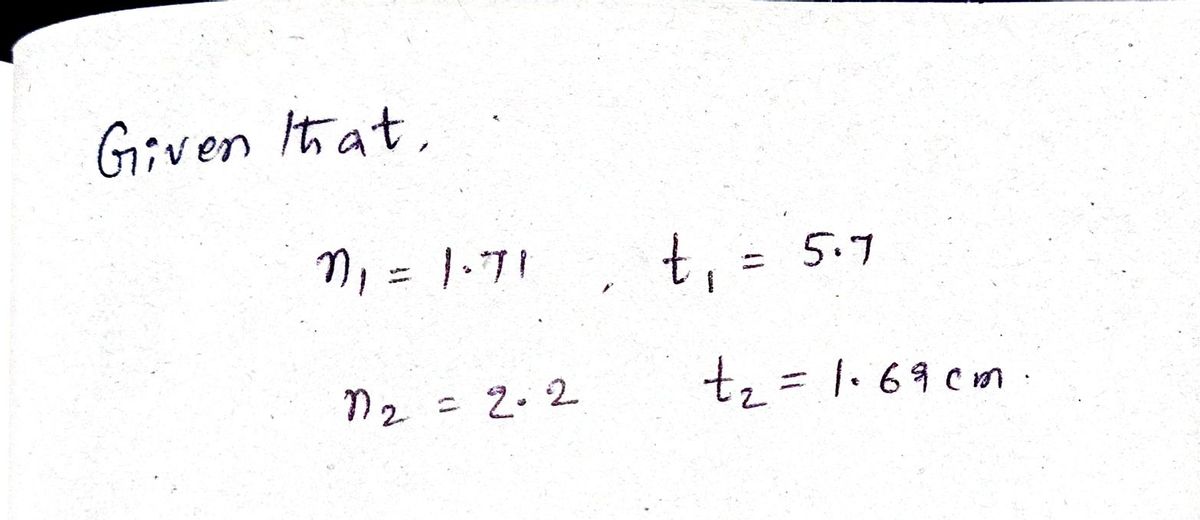 Given that,
n₁ = 1.71 , t₁ = 5.7
n₂ = 2.2 t₂ = 1.69 cm.